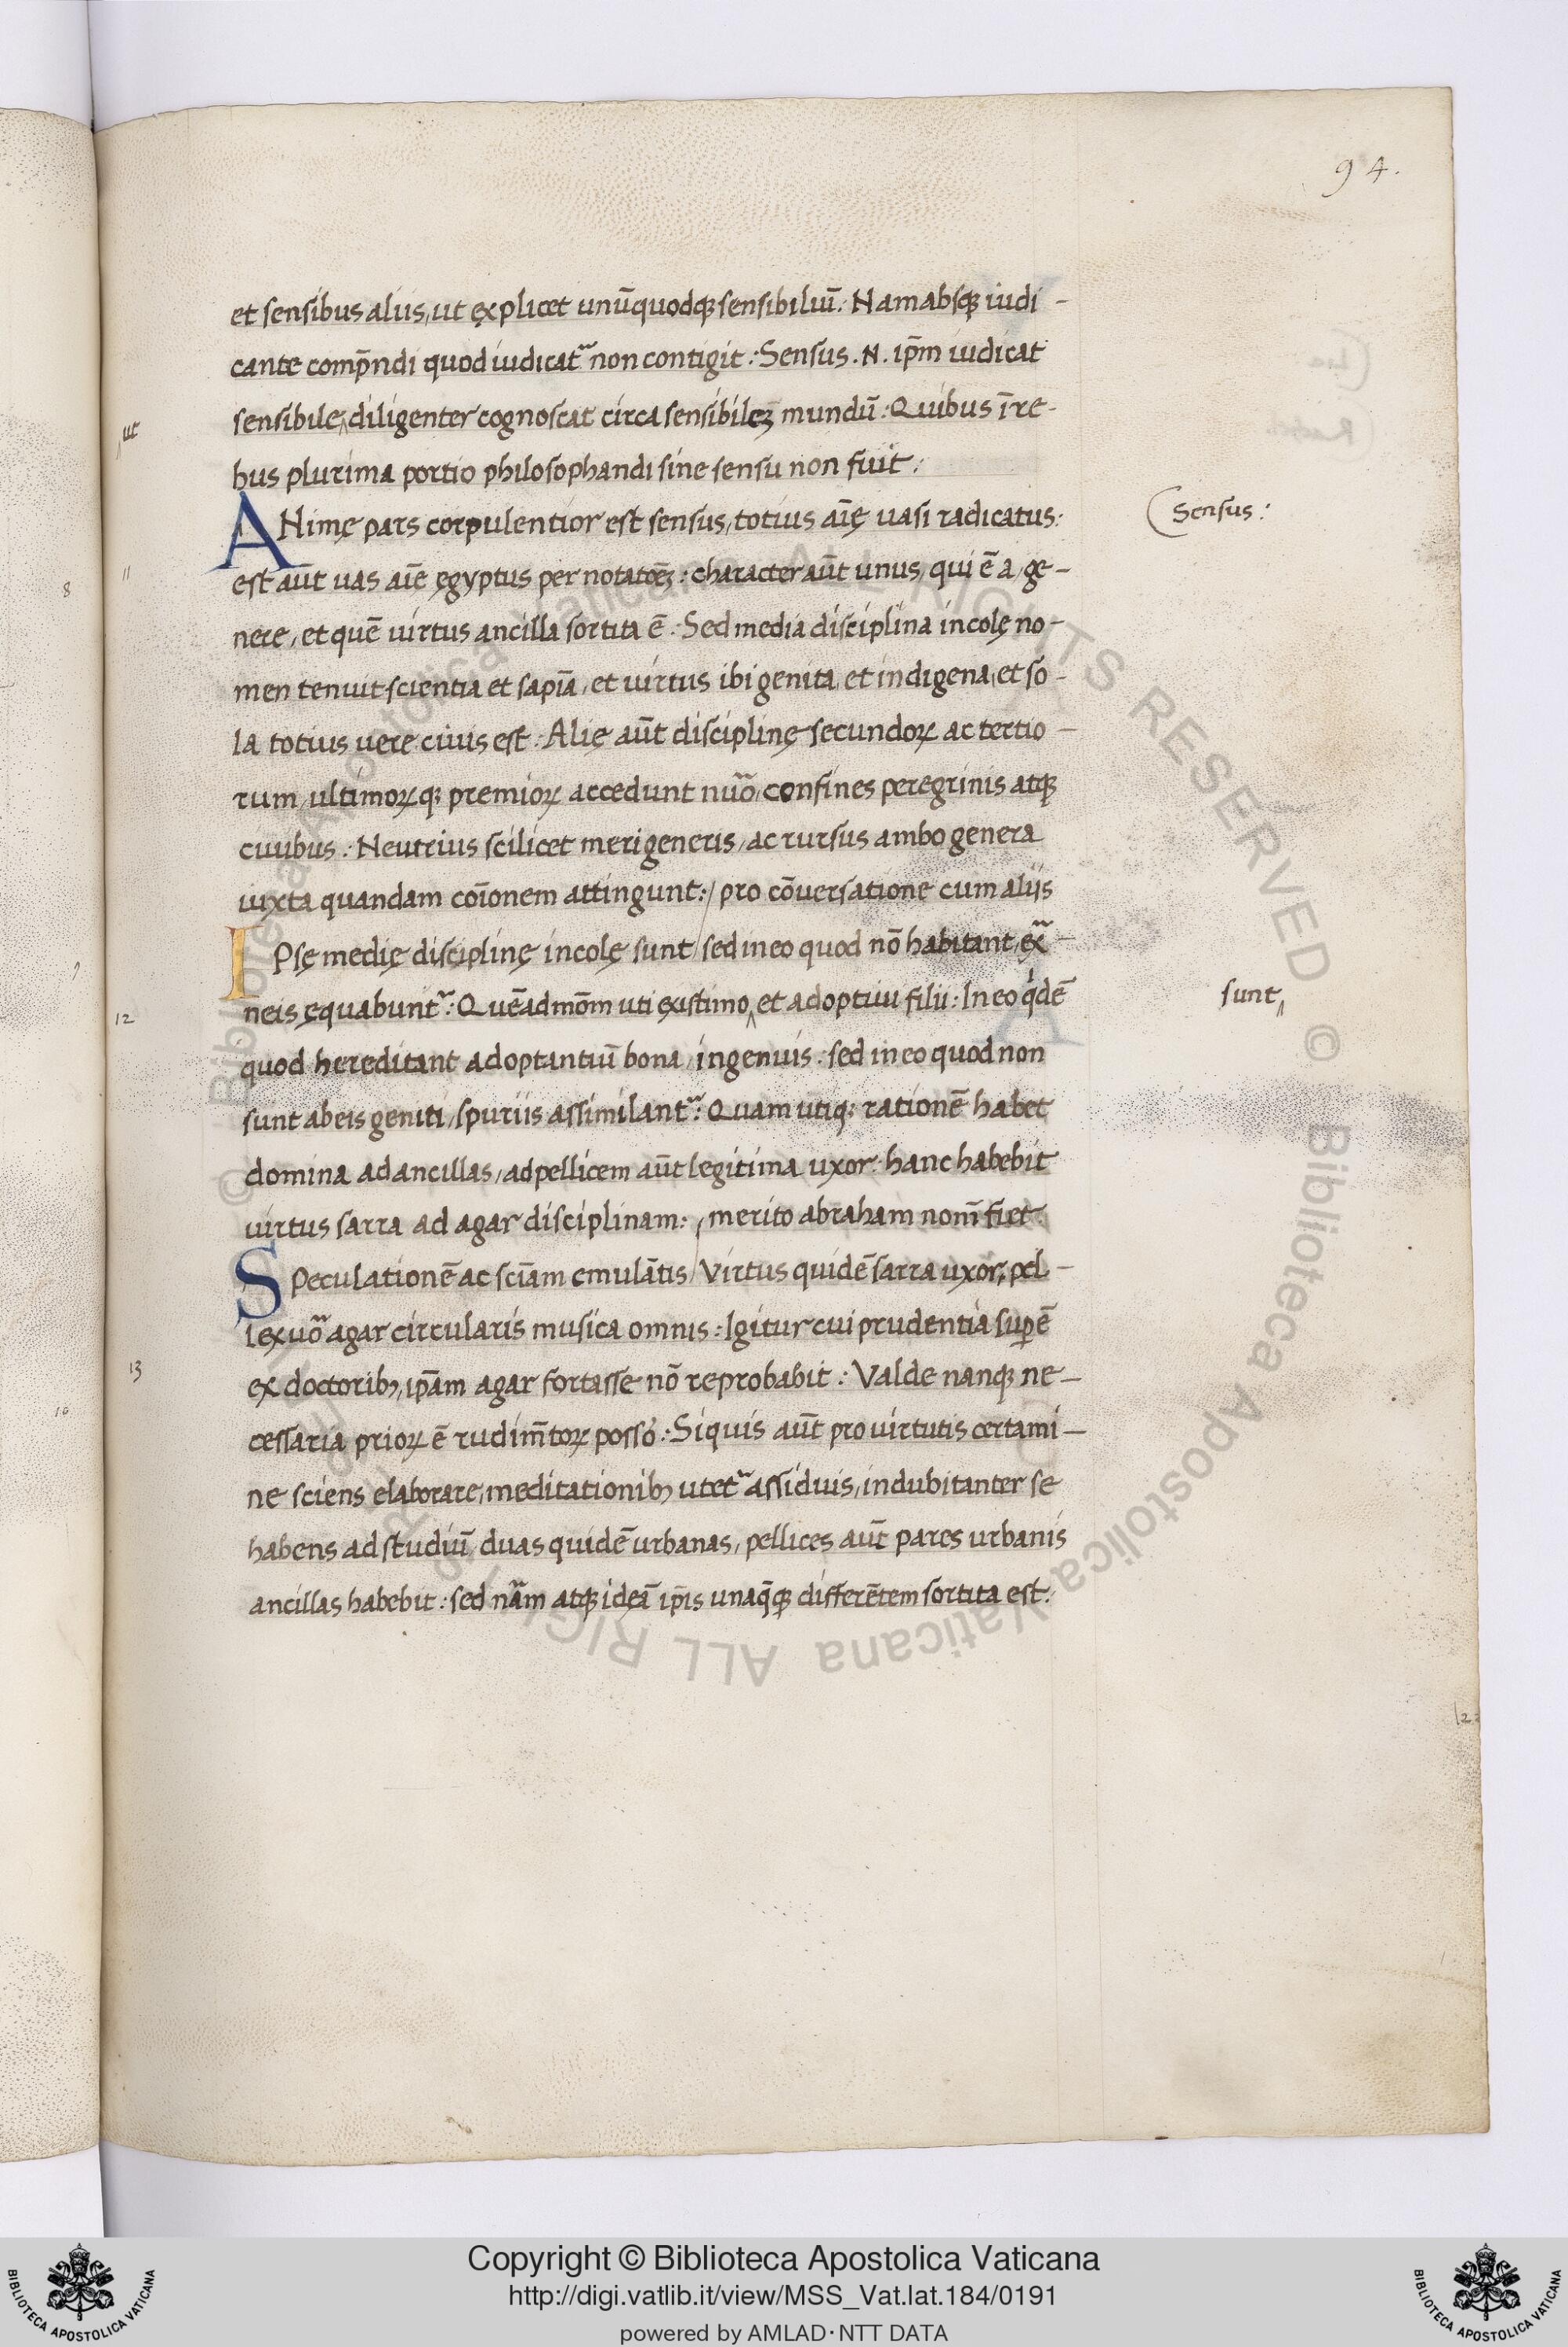 94.
et sensibus aliis, ut explicet unūquodqꝫ sensibiliū: Nam absqꝫ iudi-
cante comp̄ndi quod iudicatr̃ non contigit: Sensus. N. ip̄m iudicat
ut
sensibile diligenter cognoscat circa sensibilēꝫ mundū: Quibus ī re-
bus plurima portio philosophandi sine sensu non fuit:
ANimę pars corpulentior est sensus, totius aīę uasi radicatus:
Sensus:
11
8
est aūt uas aīe ęgyptus per notatoēꝫ: character aūt unus, qui ē a ge-
nere, et quē uirtus ancilla sortita ē: Sed media disciplina incolę no-
men tenuit scientia et sapīa, et uirtus ibi genita, et indigena, et so-
la totius uere ciuis est: Alię aūt disciplinę secundoꝝ ac tertio-
rum, ultimoꝝqꝫ premioꝝ accedunt nūo, confines peregrinis atqꝫ
ciuibus: Neutrius scilicet meri generis, ac rursus ambo genera
iuxta quandam coīonem attingunt: / pro cōuersatione cum aliis
IPsę medię disciplinę incolę sunt / sed in eo quod nō habitant, exã-
12
neis ęquabuntr̃: Quēadmōm uti existimo et adoptiui filii: In eo qͥdē
sunt
quod hereditant adoptantiū bona, ingenuis: sed in eo quod non
sunt ab eis geniti, spuriis assimilantr̃: Quam utiqꝫ rationē habet
domina ad ancillas, ad pellicem aūt legitima uxor: hanc habebit
uirtus sarra ad agar disciplinam: / merito abraham nom̄ fiet:
SPeculationē ac scīam emulātis / Virtus quidē sarra uxor, pel-
lex uõ agar circularis musica omnis: Igitur cui prudentia suꝑ ē
13
ex doctoribꝫ, ip̄am agar fortasse nō reprobabit: Valde nanqꝫ ne-
10
cessaria prioꝝ ē rudim̄toꝝ possō: Siquis aūt pro uirtutis certami-
ne sciens elaborare, meditationibꝫ utetr̃ assiduis, indubitanter se
habens ad studiū duas quidē urbanas, pellices aūt pares urbanis
ancillas habebit: sed nãm atqꝫ ideā ip̄is unaq̄qꝫ differētem sortita est:
Copyright © Biblioteca Apostolica Vaticana
http://digi.vatlib.it/view/MSS_Vat.lat.184/0191
powered by AMLAD·NTT DATA
BIBLIOTECA APOSTOLICA VATICANA
BIBLIOTECA APOSTOLICA VATICANA
© Biblioteca Apostolica Vaticana ALL RIGHTS RESERVED © Biblioteca Apostolica Vaticana ALL RIGHTS RESERVED